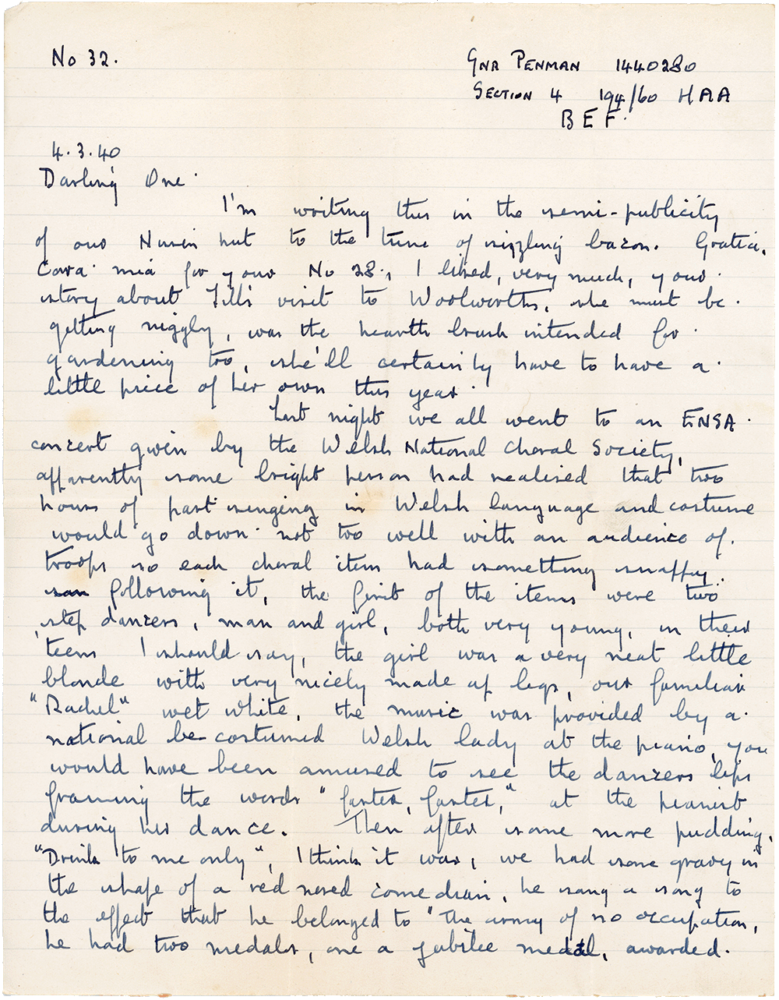 No 32.
GNR PENMAN 1440280
SECTION 4 194/60 HAA
BEF.
4.3.40
Darling One.
I'm writing this in the semi-publicity
of our Nissen hut to the tune of sizzling bacon. Gratia,
Cara mia for your No 28., I liked, very much, your
story about Jill's visit to Woolworths, she must be
getting niggly, was the hearth brush intended for
gardening too, she'll certainly have to have a
little piece of her own this year.
Last night we all went to an ENSA
concert given by the Welsh National Choral Society,
apparently some bright person had realised that two
hours of part singing in Welsh language and costume
would go down not too well with an audience of
troops so each choral item had something snappy
following it, the first of the items were two
step dancers, man and girl, both very young, in their
teens I should say, the girl was a very neat little
blonde with very nicely made up legs, our familiar
"Rachel" wet white, the music was provided by a
national be-costumed Welsh lady at the piano, you
would have been amused to see the dancers lips
framing the words "faster, faster," at the pianist
during his dance. Then after some more pudding,
"Drink to me only", I think it was, we had some gravy in
the shape of a red nosed comedian, he sang a song to
the effect that he belonged to "the army of no occupation,
he had two medals, one a jubilee medal, awarded.